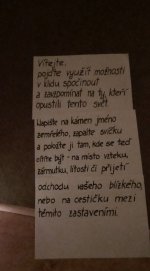 Vítejte,
pojďte využít možnosti
v klidu spočinout
a zavzpomínat na ty, kteří
opustili tento svět.
Napište na kámen jméno
zemřelého, zapalte svíčku
a položte ji tam, kde se teď
cítíte být - na místo vzteku,
zármutku, lítosti či přijetí
odchodu vašeho blízkého,
nebo na cestičku mezi
těmito zastaveními.